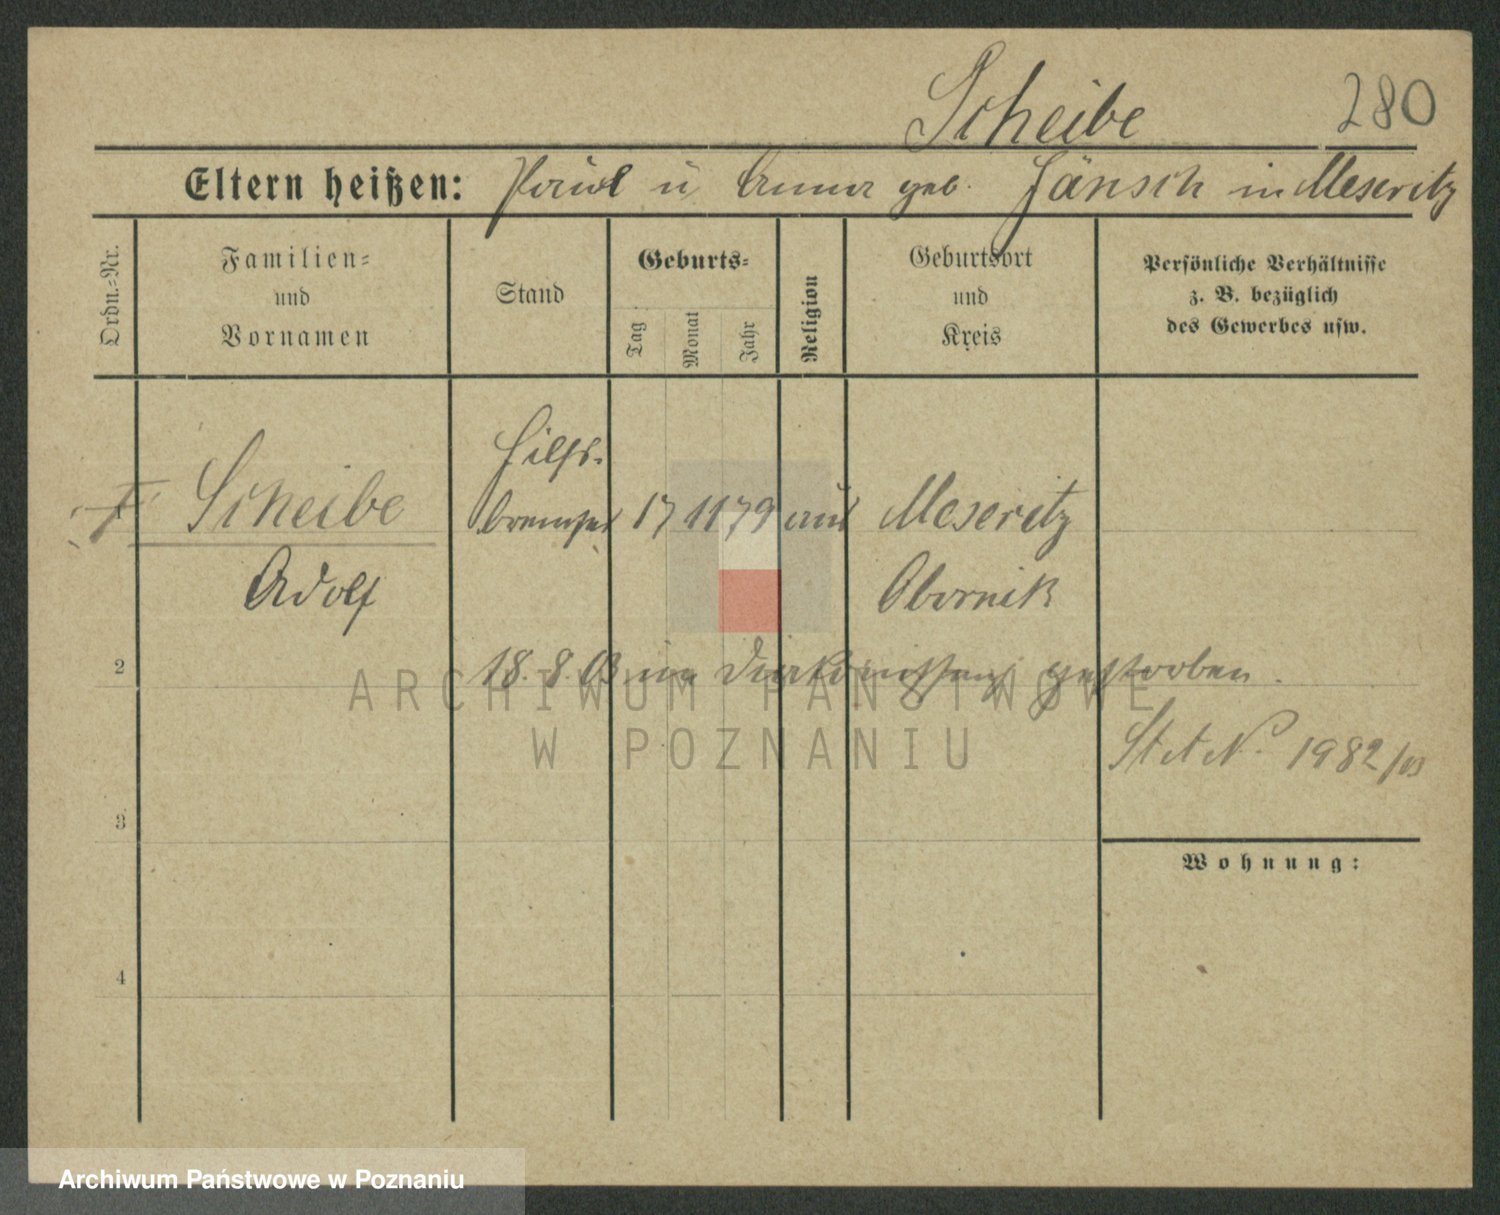 Scheibe 280
Eltern heißen: Paul u Anna geb. Jänsch in Meseritz
Ordn.-Nr.
Familien- und Vornamen
Stand
Geburts-
Tag Monat Jahr
Religion
Geburtsort und Kreis
Persönliche Verhältnisse
z. B. bezüglich
des Gewerbes usw.
Hilfs-
Scheibe bremser 17 11 79 Meseritz
Adolf Obornik
2 18. 8. 03 im gestorben.
St A No. 1982/03
3
Wohnung:
4
ARCHIWUM PAŃSTWOWE
W POZNANIU
Archiwum Państwowe w Poznaniu